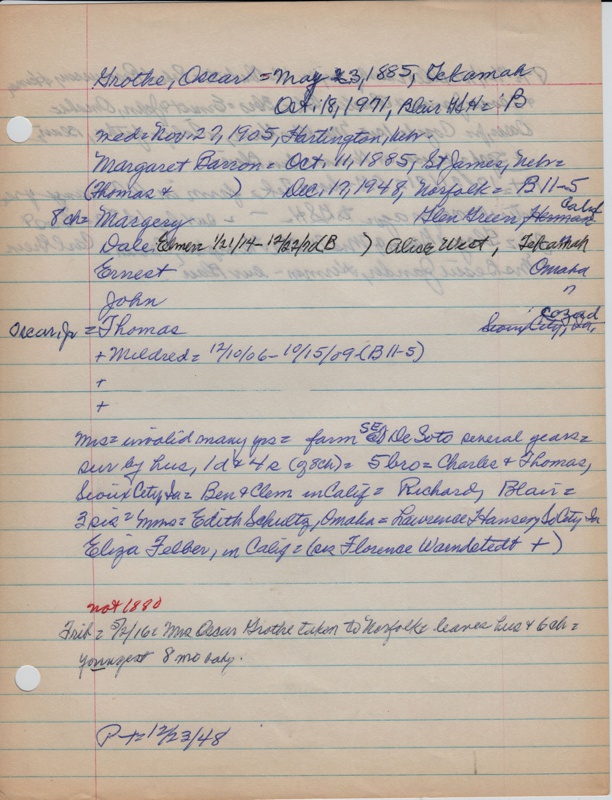 Grothe, Oscar = May 23, 1885, Tekamah
Oct. 18, 1971, Blair = B
med = Nov. 27, 1905, Hartington, Nebr.
Margaret Barron = Oct. 11, 1885, St James, Nebr =
(Thomas & ) Dec. 17, 1948, Norfolk = B 11-5
8 ch = Margery Glen Green, Herman Calif
Dale Elmer 1/21/14 - 12/22/ B ) Alice West, Tekamah
Ernest Omaha
John "
Oscar, Jr = Thomas Sioux City, Ia, Cozad
+ Mildred = 12/10/06 - 10/15/09 (B 11-5)
+
+
Mrs = invalid many yrs = farm SE DeSoto several years =
sur by hus, 1 d & 4 s (of 8 ch) = 5 bro = Charles & Thomas,
Sioux City, Ia = Ben & Clem in Calif = Richard, Blair =
3 sis = Mmes = Edith Schultz, Omaha = Lawrence Hansen, So City Ia
Eliza Felber, in Calif = (sis Florence Warndstedt +)
not 1880
Trib = 16 = Mrs Oscar Grothe taken to Norfolk leaves hus & 6 ch =
youngest 8 mo baby.
P-T = 12/23/48